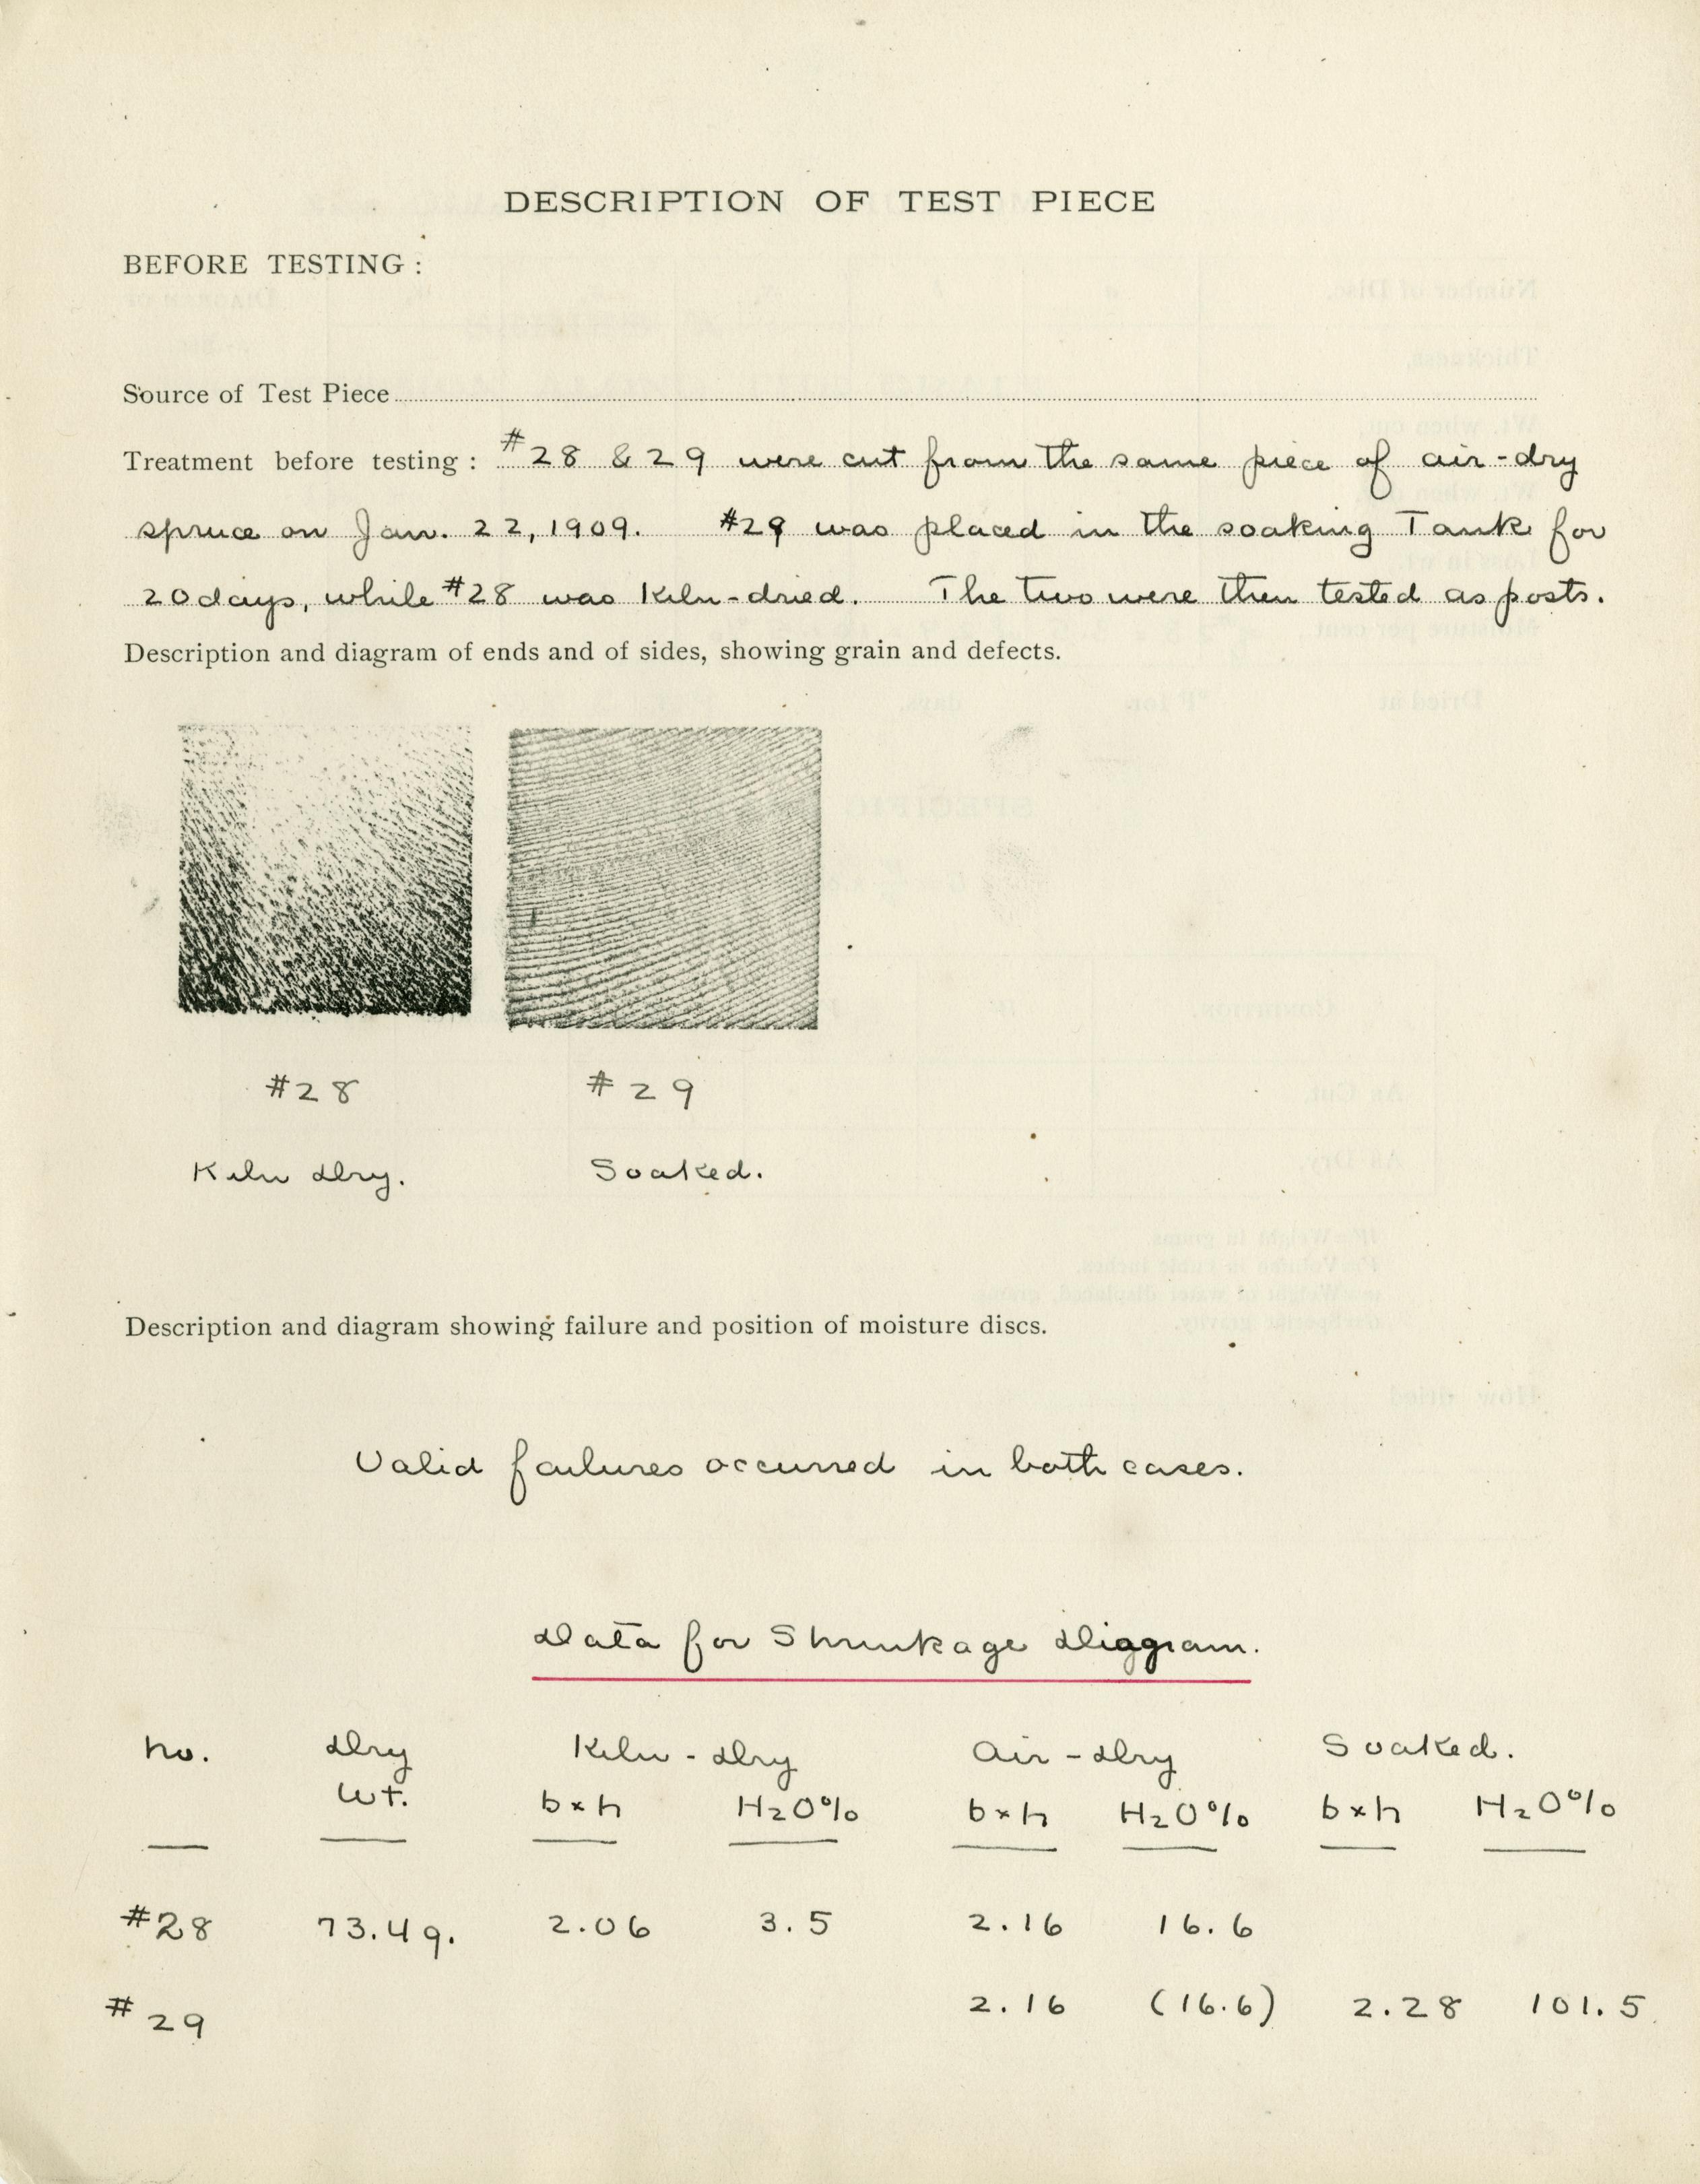 DESCRIPTION OF TEST PIECE
BEFORE TESTING :
Source of Test Piece
Treatment before testing : #28 & 29 were cut from the same piece of air-dry
spruce on Jan. 22, 1909. #29 was placed in the soaking Tank for
20 days, while #28 was Kiln-dried. The two were then tested as posts.
Description and diagram of ends and of sides, showing grain and defects.
#28 #29
Kiln Dry. Soaked.
Description and diagram showing failure and position of moisture discs.
Valid failures occurred in both cases.
Data for Shrinkage Diagram.
No. Dry Kiln-Dry Air-Dry Soaked.
Wt. b×h H2O% b×h H2O% b×h H2O%
#28 73.4g. 2.06 3.5 2.16 16.6
#29 2.16 (16.6) 2.28 101.5